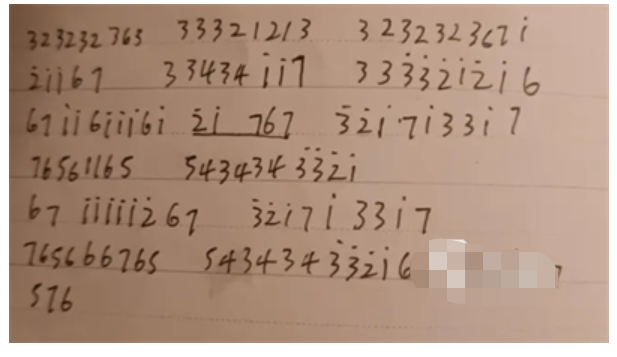 323232763 33321213 323232367i̇
2̇i̇i̇67 33434i̇i̇7 333̇3̇2̇i̇2̇i̇6
67i̇i̇6i̇i̇i̇6i̇ 2̇i̇ 767 3̇2̇i̇7i̇33i̇7
76561165 5434343̇3̇2̇i̇
67 i̇i̇i̇i̇i̇2̇67 3̇2̇i̇7i̇33i̇7
765666765 5434343̇3̇2̇i̇6
576